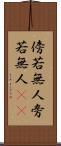 傍若無人旁
若無人